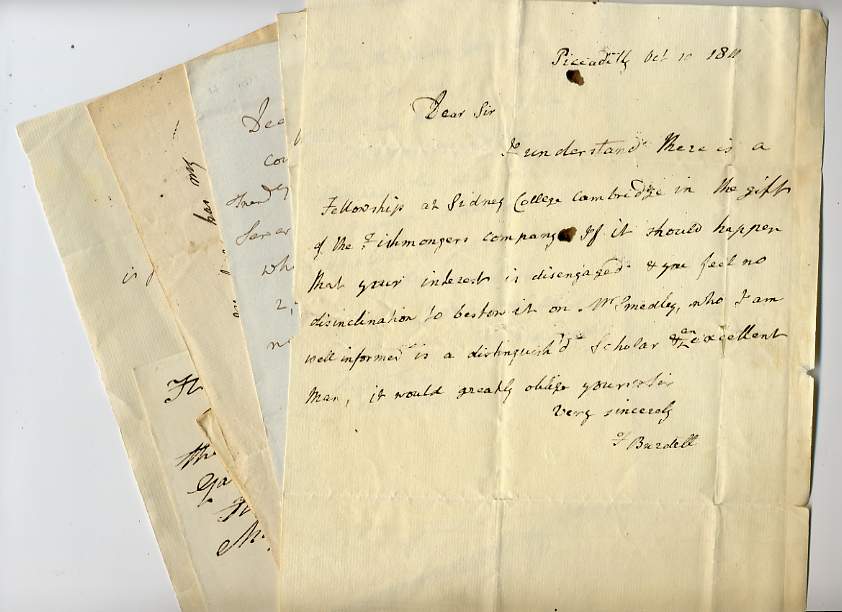 Piccadilly Oct 10 1811
Dear Sir
I understand there is a
Fellowship at Sidney College Cambridge in the gift
of the Fishmongers company If it should happen
that your interest is disengaged & you feel no
disinclination to bestow it on Mr Smedley, who I am
well informed is a distinguish'd Scholar & an excellent
Man, it would greatly oblige yours Sir
Very sincerely
F Burdett
Dee
cou
wh
2,
is